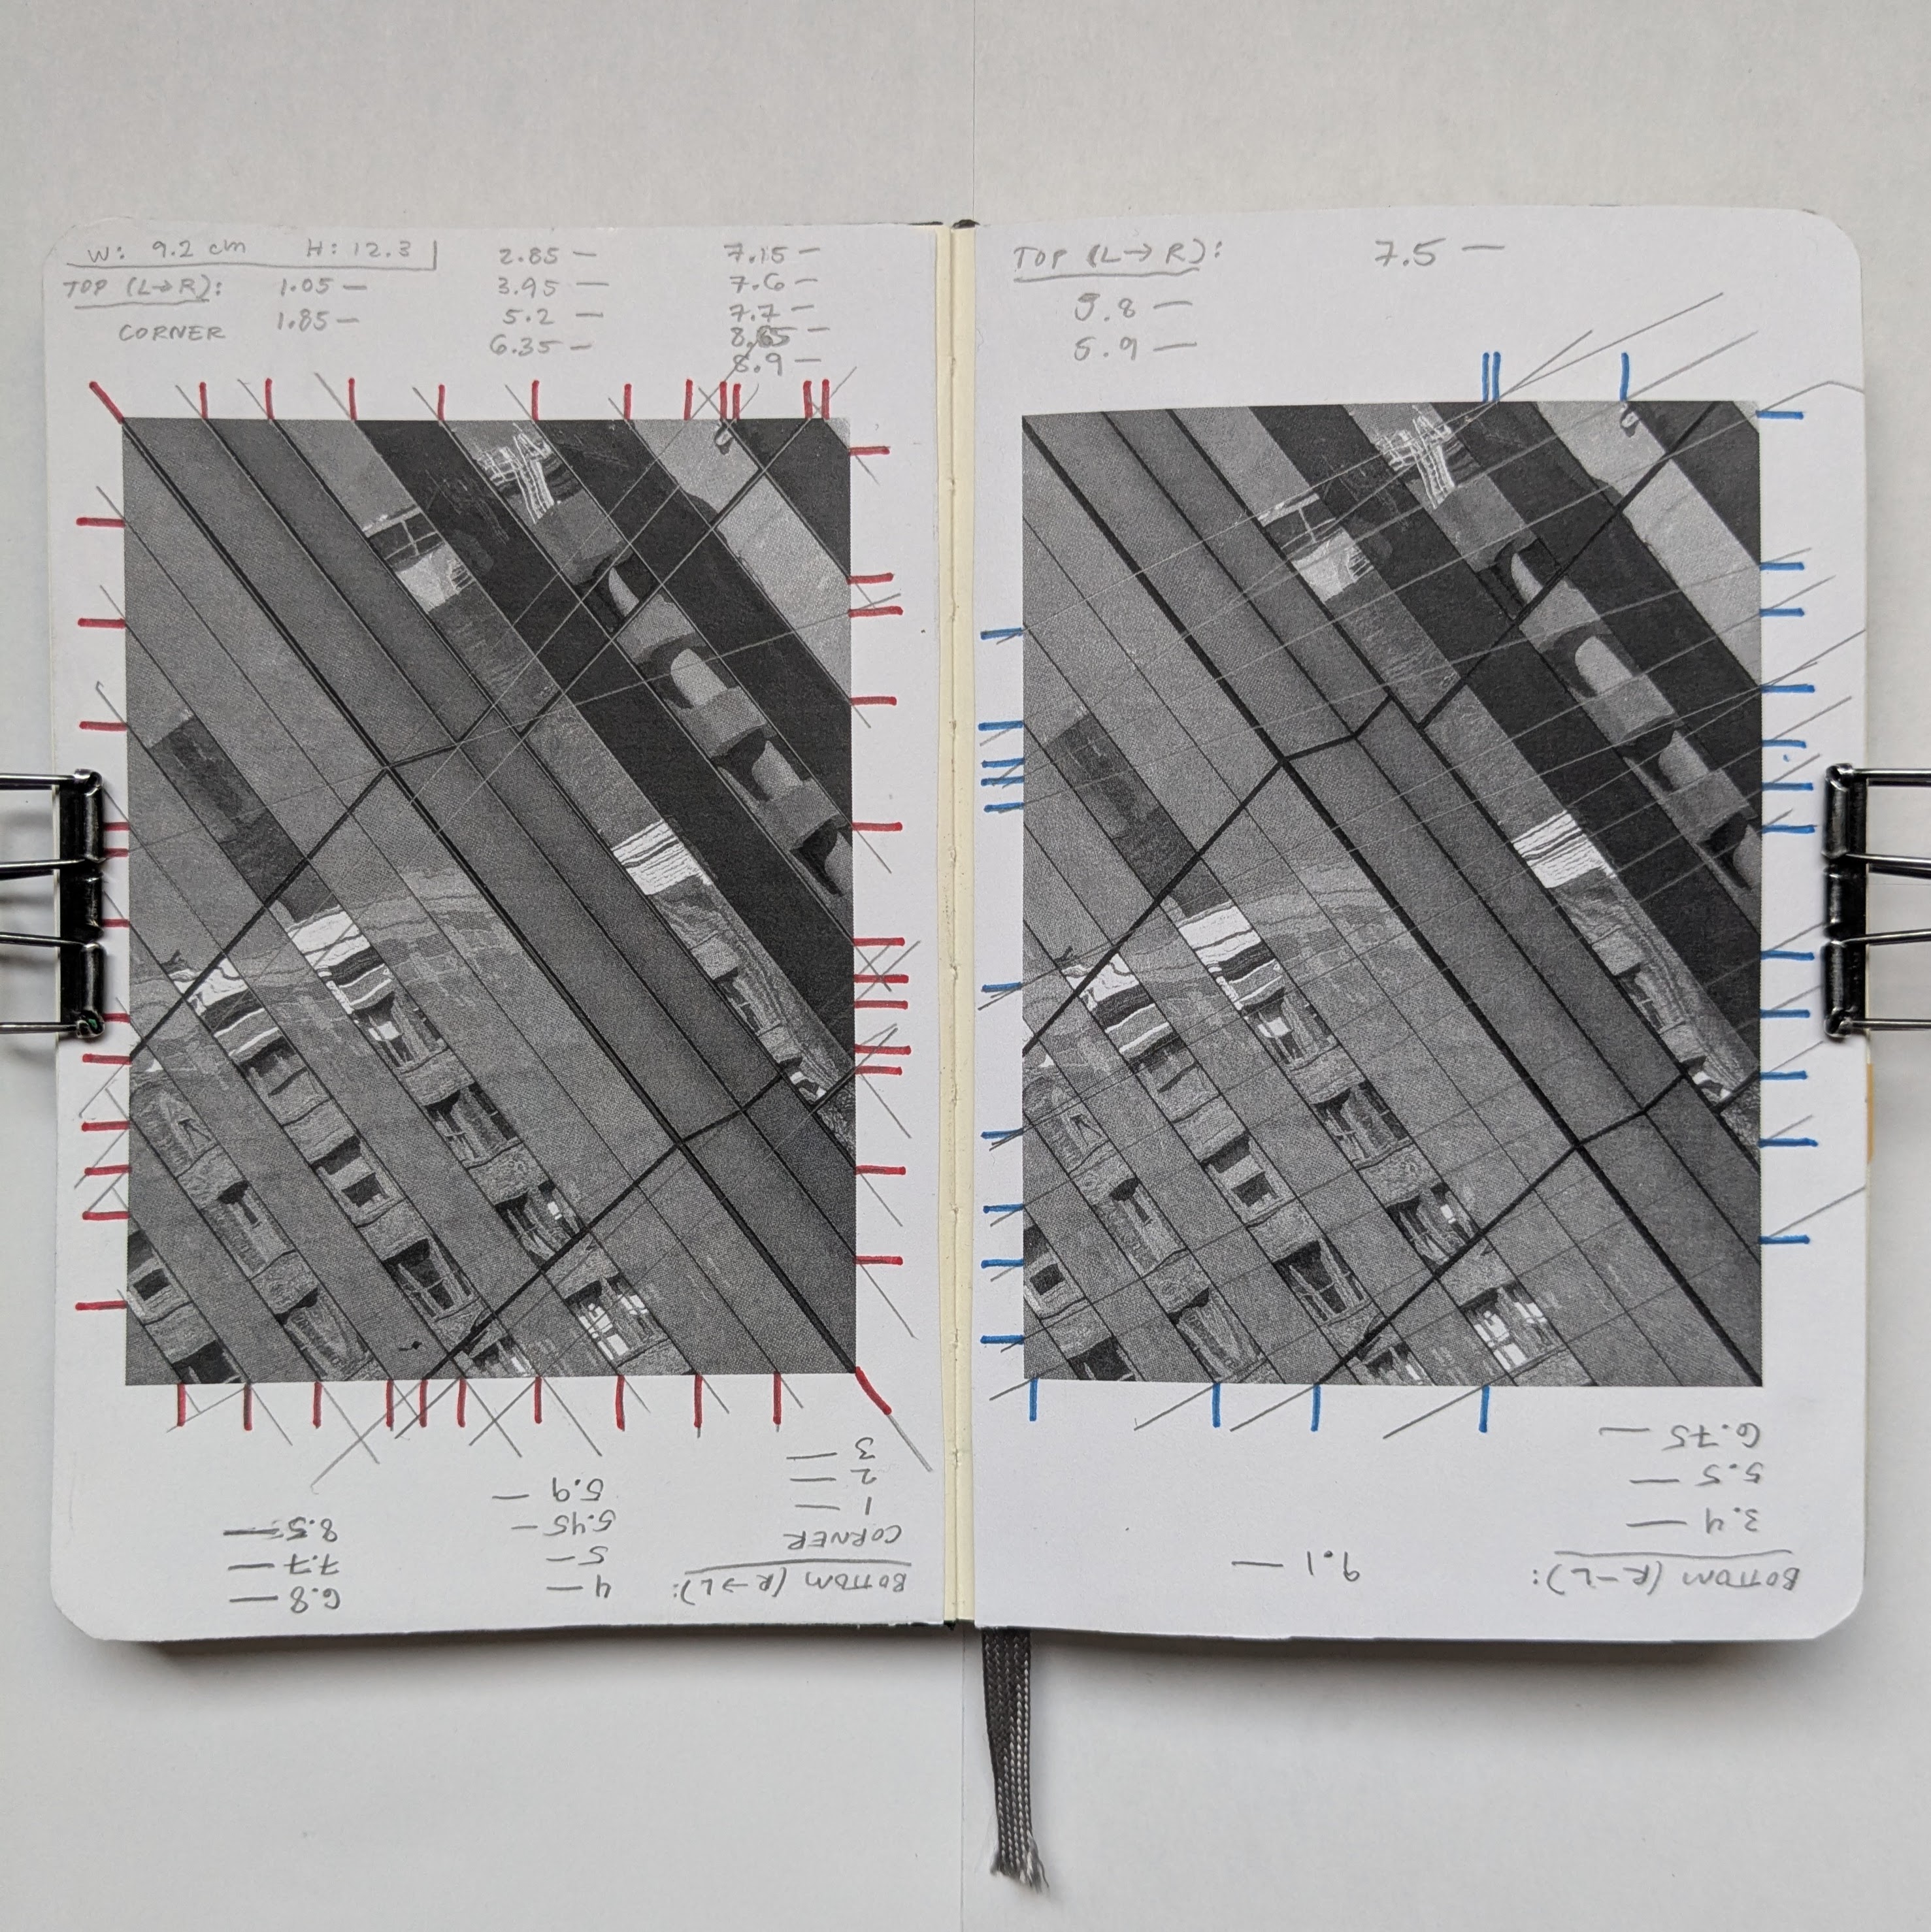 W: 9.2 cm H: 12.3
TOP (L→R):
CORNER
1.05 —
1.85 —
2.85 —
3.95 —
5.2 —
6.35 —
7.15 —
7.6 —
7.7 —
8.65 —
8.9 —
BOTTOM (R→L):
CORNER
1 —
2 —
3 —
4 —
5 —
5.45 —
5.9 —
6.8 —
7.7 —
8.5 —
TOP (L→R):
5.8 —
5.9 —
7.5 —
BOTTOM (R-L):
3.4 —
5.5 —
6.75 —
9.1 —